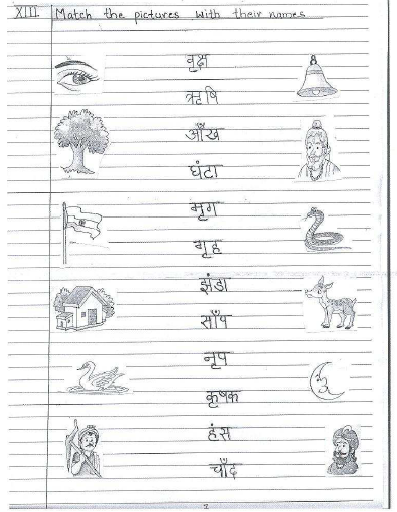 XIII. Match the pictures with their names
वृक्ष
ऋषि
आँख
घंटा
मृग
गृह
झंडा
साँप
नृप
कृषक
हंस
चाँद